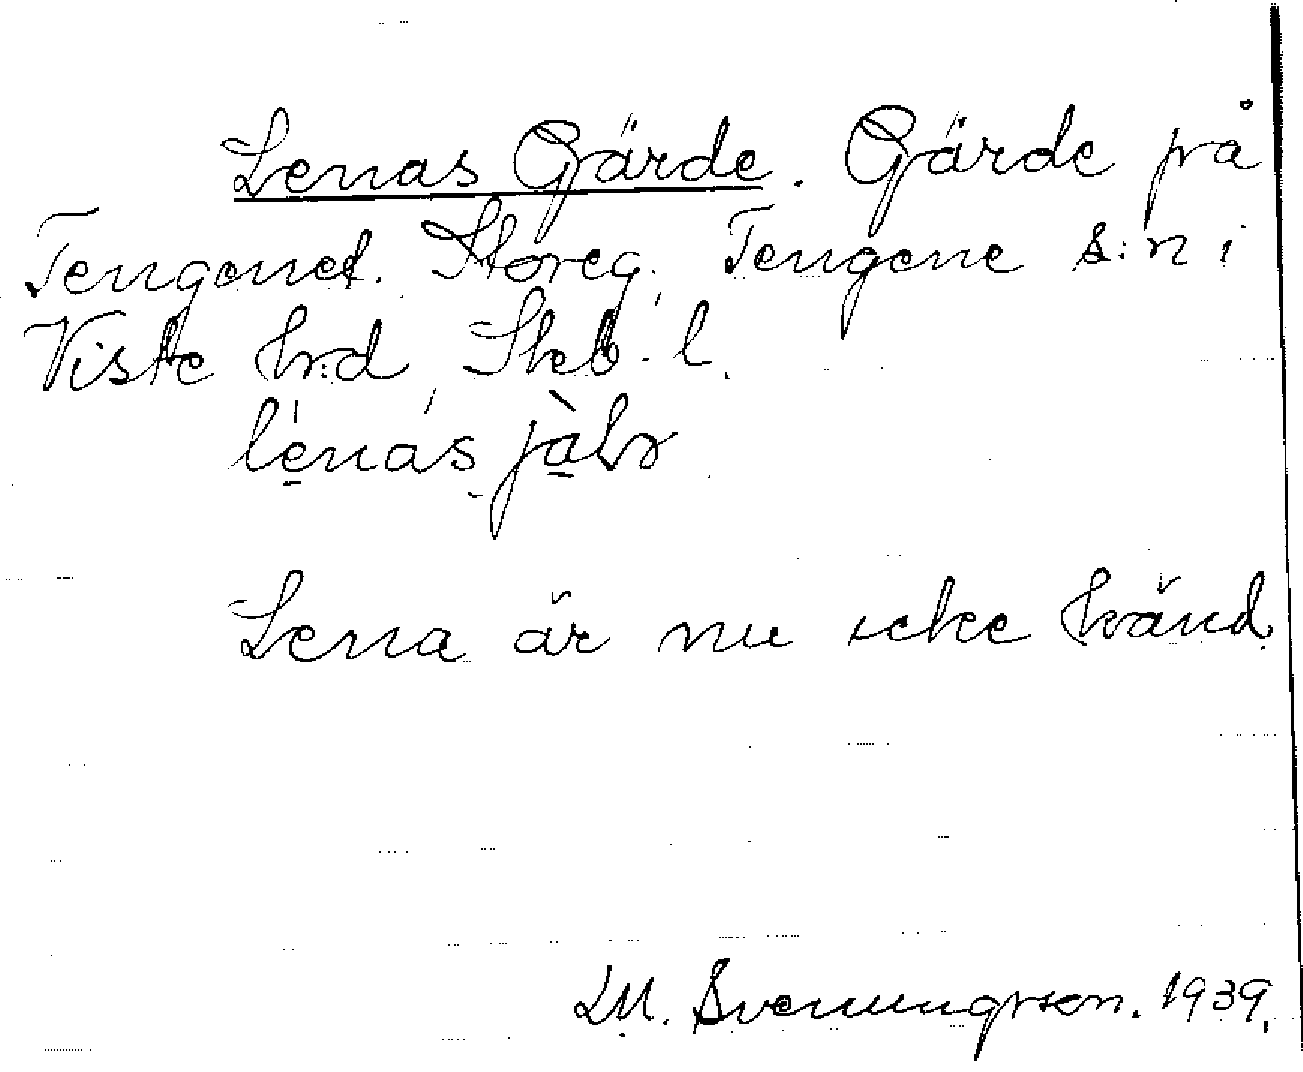 Lenas Gärde. Gärde på
Tengenet. Storeg. Tengene s:n i
Viste hrd, Skab. l.
lénas jàlr
Lena är nu icke känd.
M. Svenungsson. 1939.